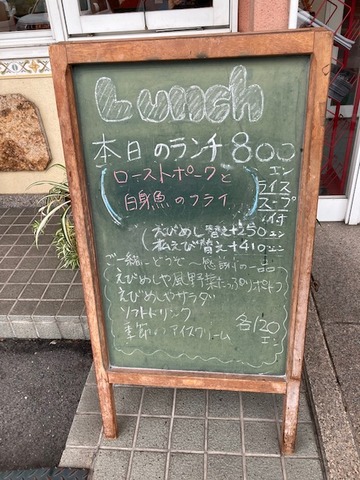 Lunch
本日のランチ 800エン
ローストポークと
白身魚のフライ
ライス
スープ
付
えびめし替え+250エン
(えび替え+410エン
ご一緒にどうぞ～感謝の一品
えびめしや風野菜たっぷりポトフ
えびめしやサラダ
ソフトドリンク
季節のアイスクリーム
各120エン